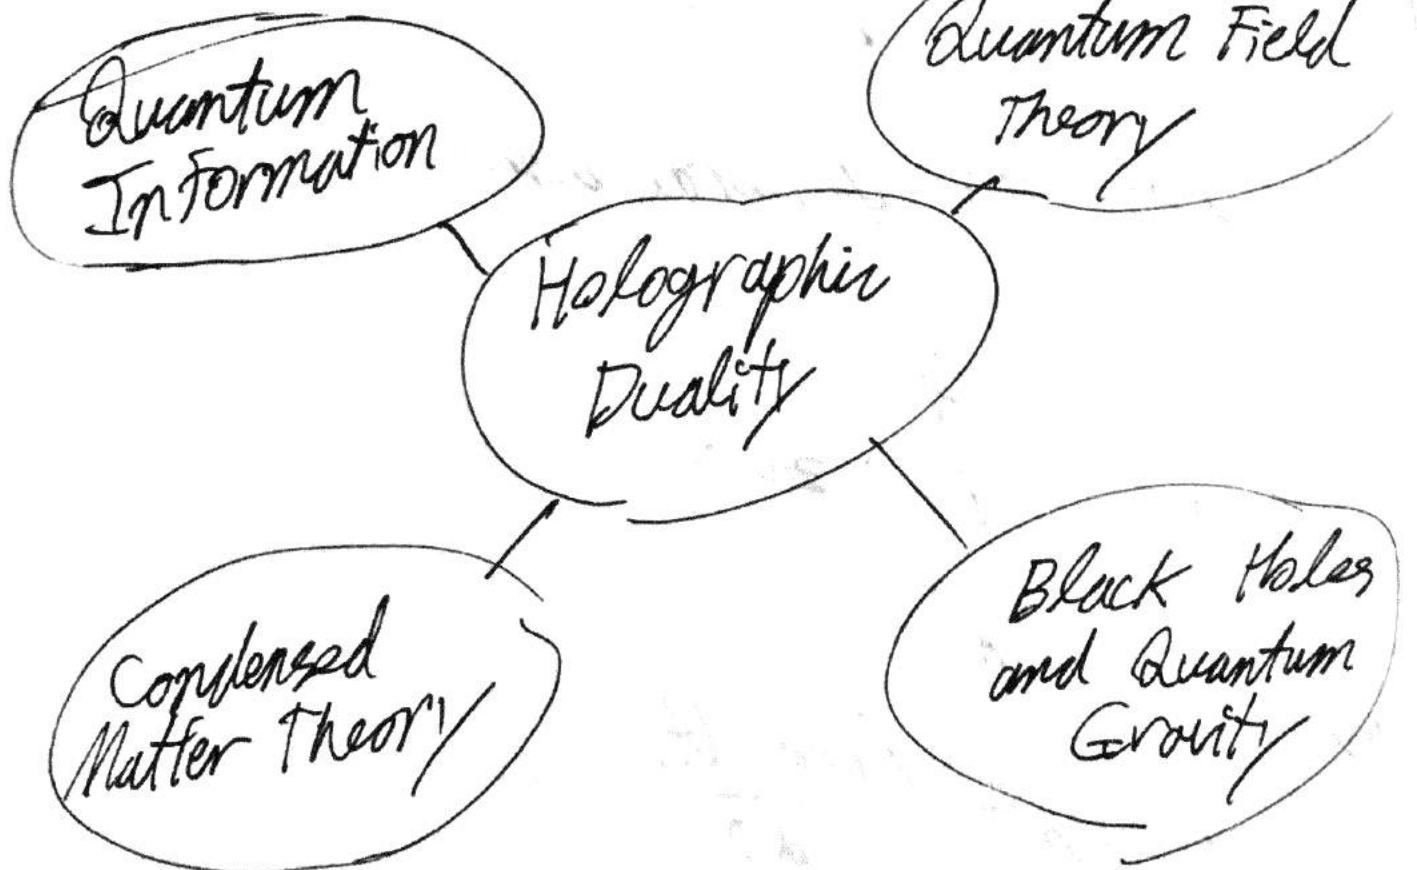 Quantum
Information
Quantum Field
Theory
Holographic
Duality
Condensed
Matter Theory
Black Holes
and Quantum
Gravity